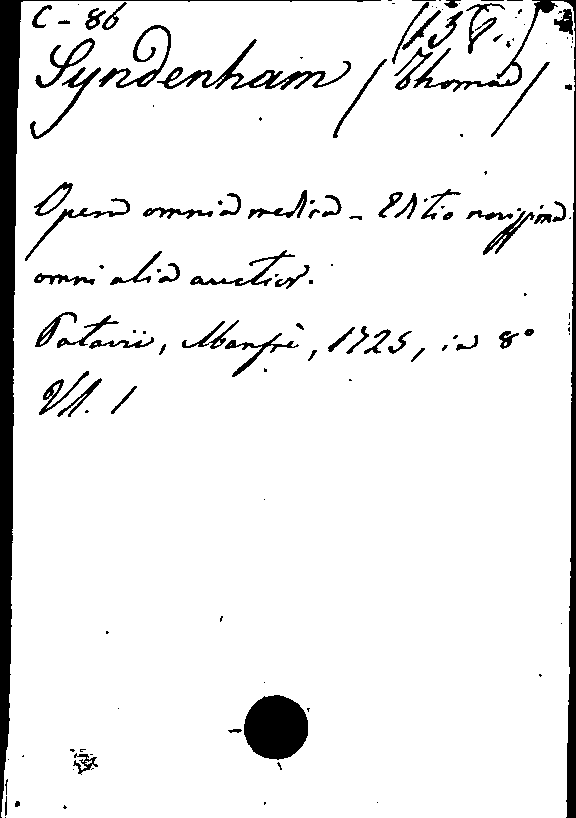 C - 86
Syndenham (Thomas)
Opera omnia medica - Editio novissima
omni alia auctior.
Patavii, Manfrè, 1725, in 8°
Vol. 1